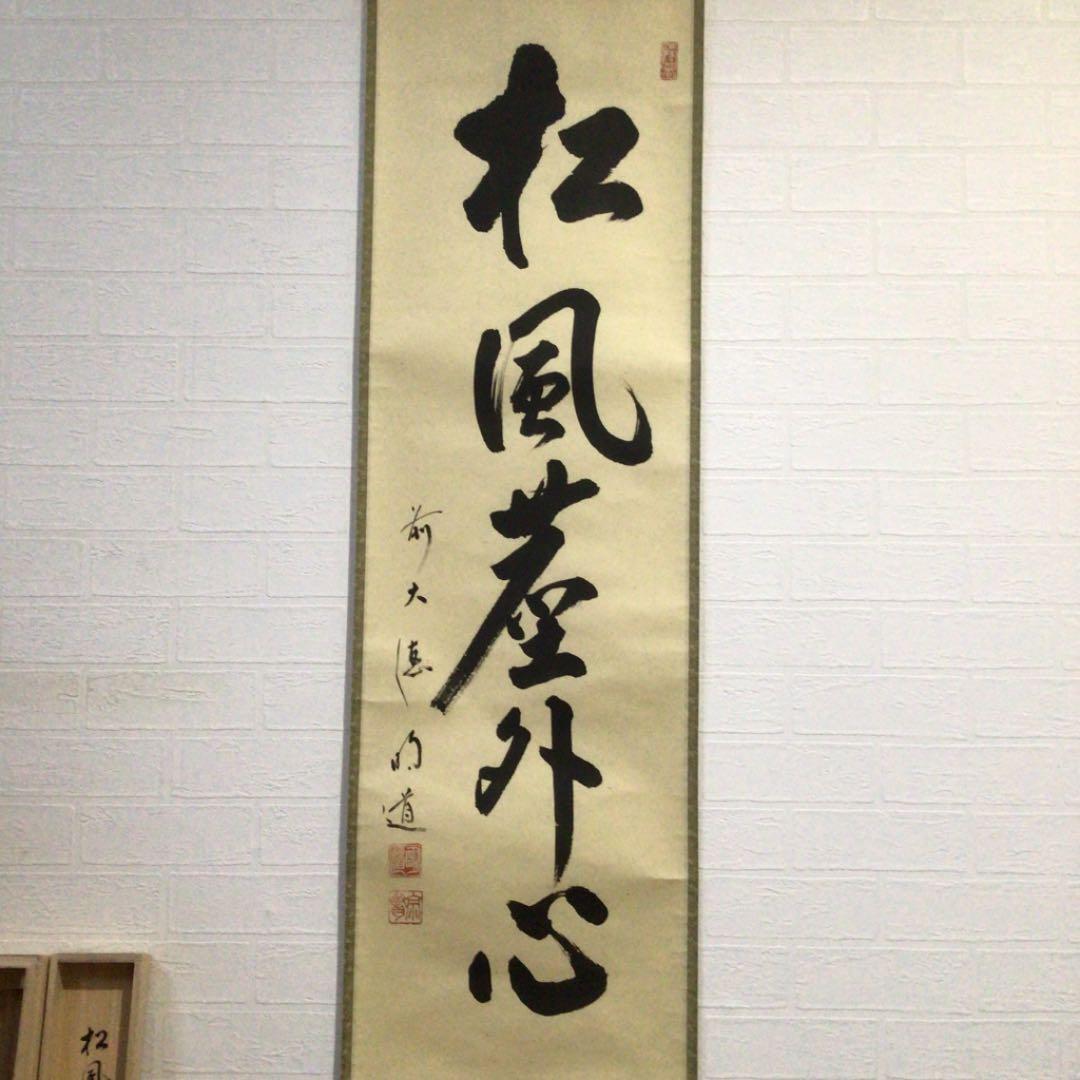 松風塵外心
前大徳明道
松風